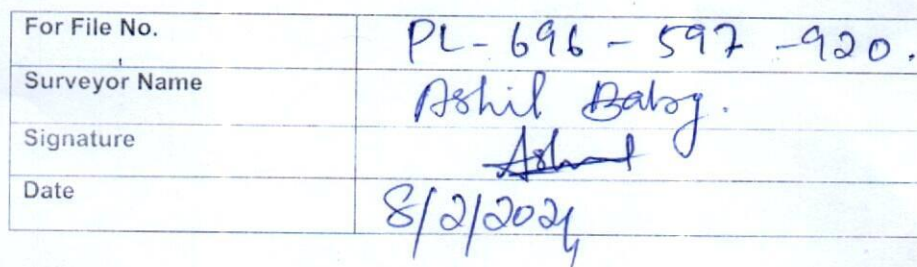 For File No. PL-696-597-920.
Surveyor Name Ashil Baby.
Signature
Date 8/2/2024